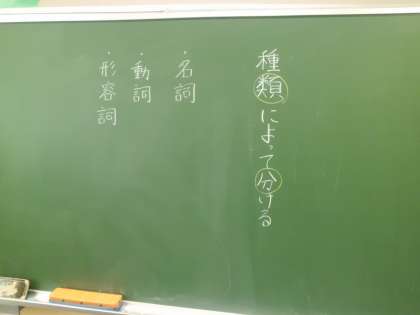 種類によって分ける
・名詞
・動詞
・形容詞